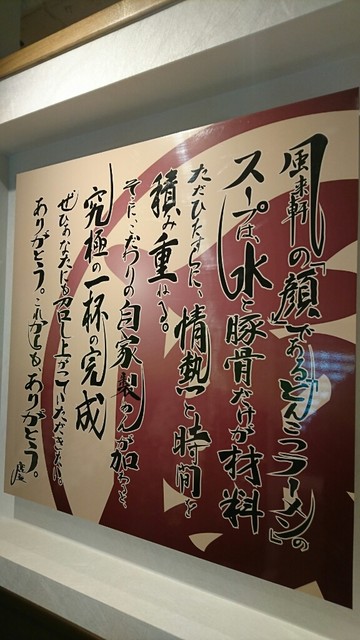 風来軒の「顔」であるとんこつラーメンの
スープは、水と豚骨だけが材料
ただひたすらに、情熱と時間を
積み重ねる。
そこに、こだわりの自家製めんが加わると、
究極の一杯の完成
ぜひあなたにも召し上がっていただきたい。
ありがとう。これからもありがとう。